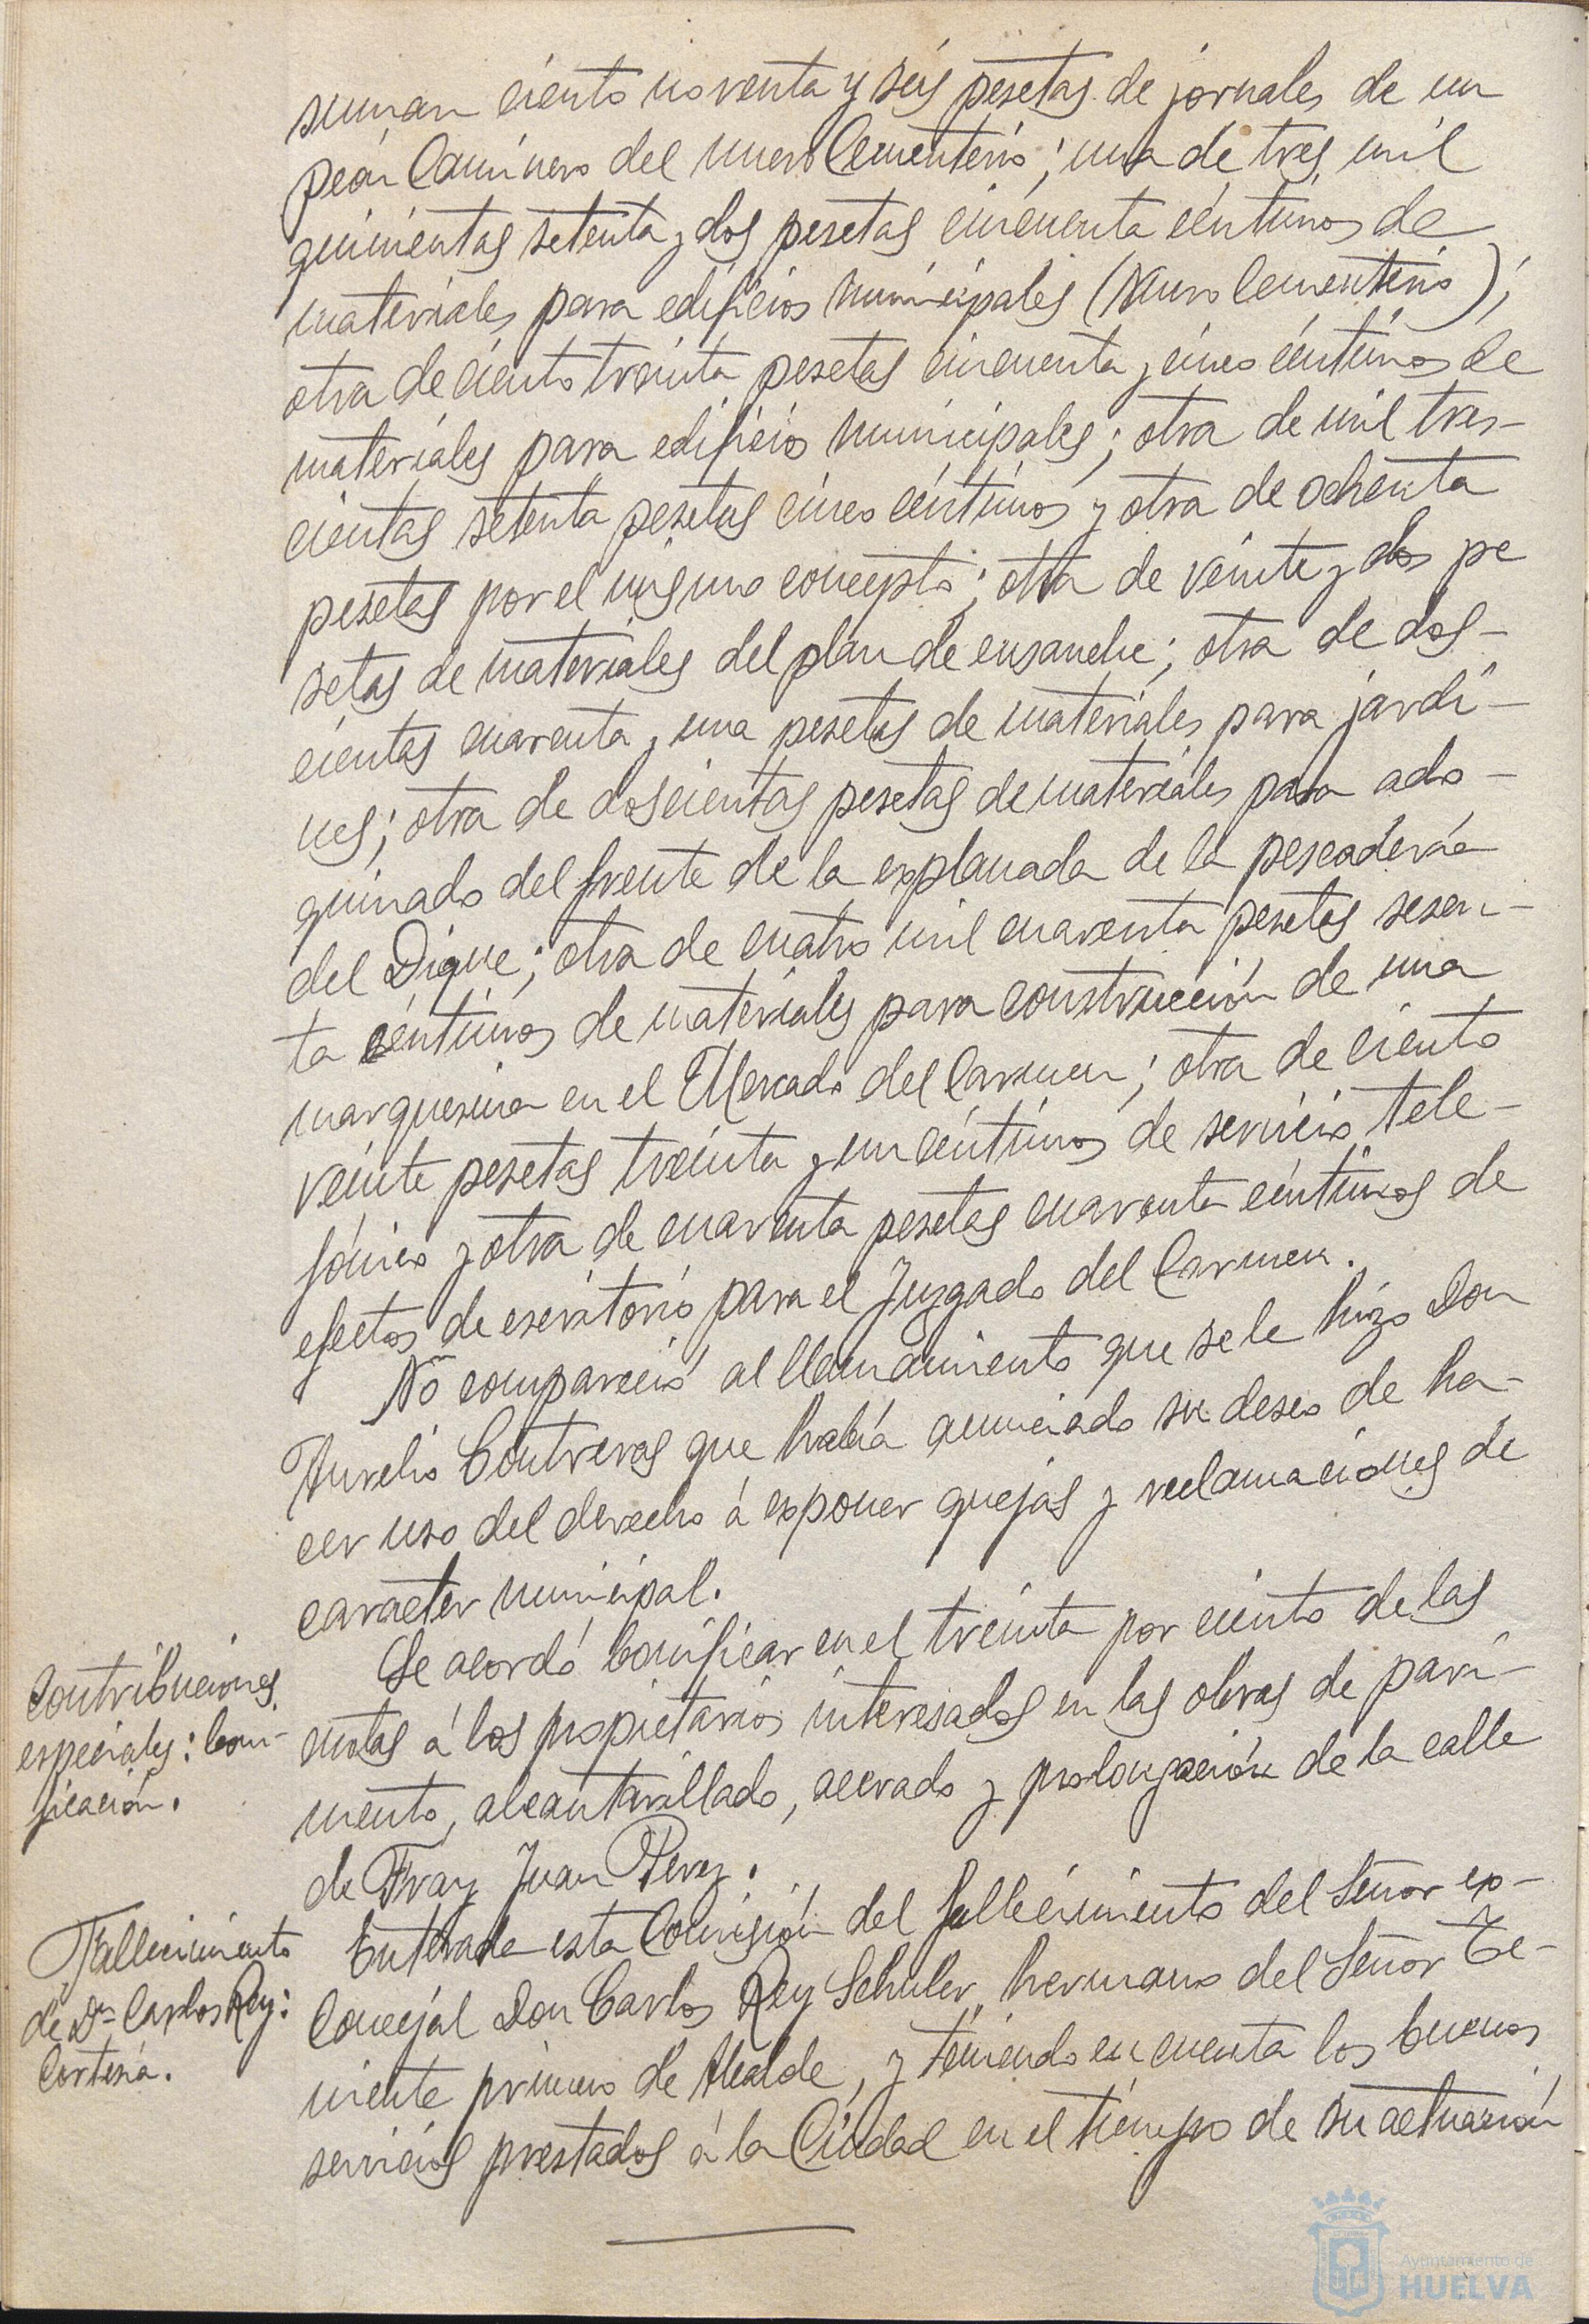 suman ciento noventa y seis pesetas de jornales de un
peón Caminero del nuevo Cementerio; una de tres mil
quinientas setenta y dos pesetas cincuenta céntimos de
materiales para edificios municipales (Nuevo Cementerio);
otra de ciento treinta pesetas cincuenta y cinco céntimos de
materiales para edificios municipales; otra de mil tres-
cientas setenta pesetas cinco céntimos y otra de ochenta
pesetas por el mismo concepto; otra de veinte y dos pe
setas de materiales del plan de ensanche; otra de dos-
cientas cuarenta y una pesetas de materiales para jardi-
nes; otra de doscientas pesetas de materiales para ado-
quinado del frente de la explanada de la pescadería
del Dique; otra de cuatro mil cuarenta pesetas sesen-
ta céntimos de materiales para construcción de una
marquesina en el Mercado del Carmen; otra de ciento
veinte pesetas treinta y un céntimos de servicio tele-
fónico y otra de cuarenta pesetas cuarenta céntimos de
efectos de escritorio para el Juzgado del Carmen.
No compareció al llamamiento que se le hizo Don
Aurelio Contreras que había anunciado su deseo de ha-
cer uso del derecho á exponer quejas y reclamaciones de
caracter municipal.
Contribuciones
especiales: boni-
ficación.
Se acordó bonificar en el treinta por ciento de las
cuotas á los propietarios interesados en las obras de pavi-
mento, alcantarillado, acerado y prolongación de la calle
de Fray Juan Pérez.
Fallecimiento
de Dn Carlos Rey:
Cortesía.
Enterada esta Comisión del fallecimiento del Señor ex-
Concejal Don Carlos Rey Schuler, hermano del Señor Te-
niente primero de Alcalde, y teniendo en cuenta los buenos
servicios prestados á la Ciudad en el tiempo de su actuación
Ayuntamiento de
HUELVA